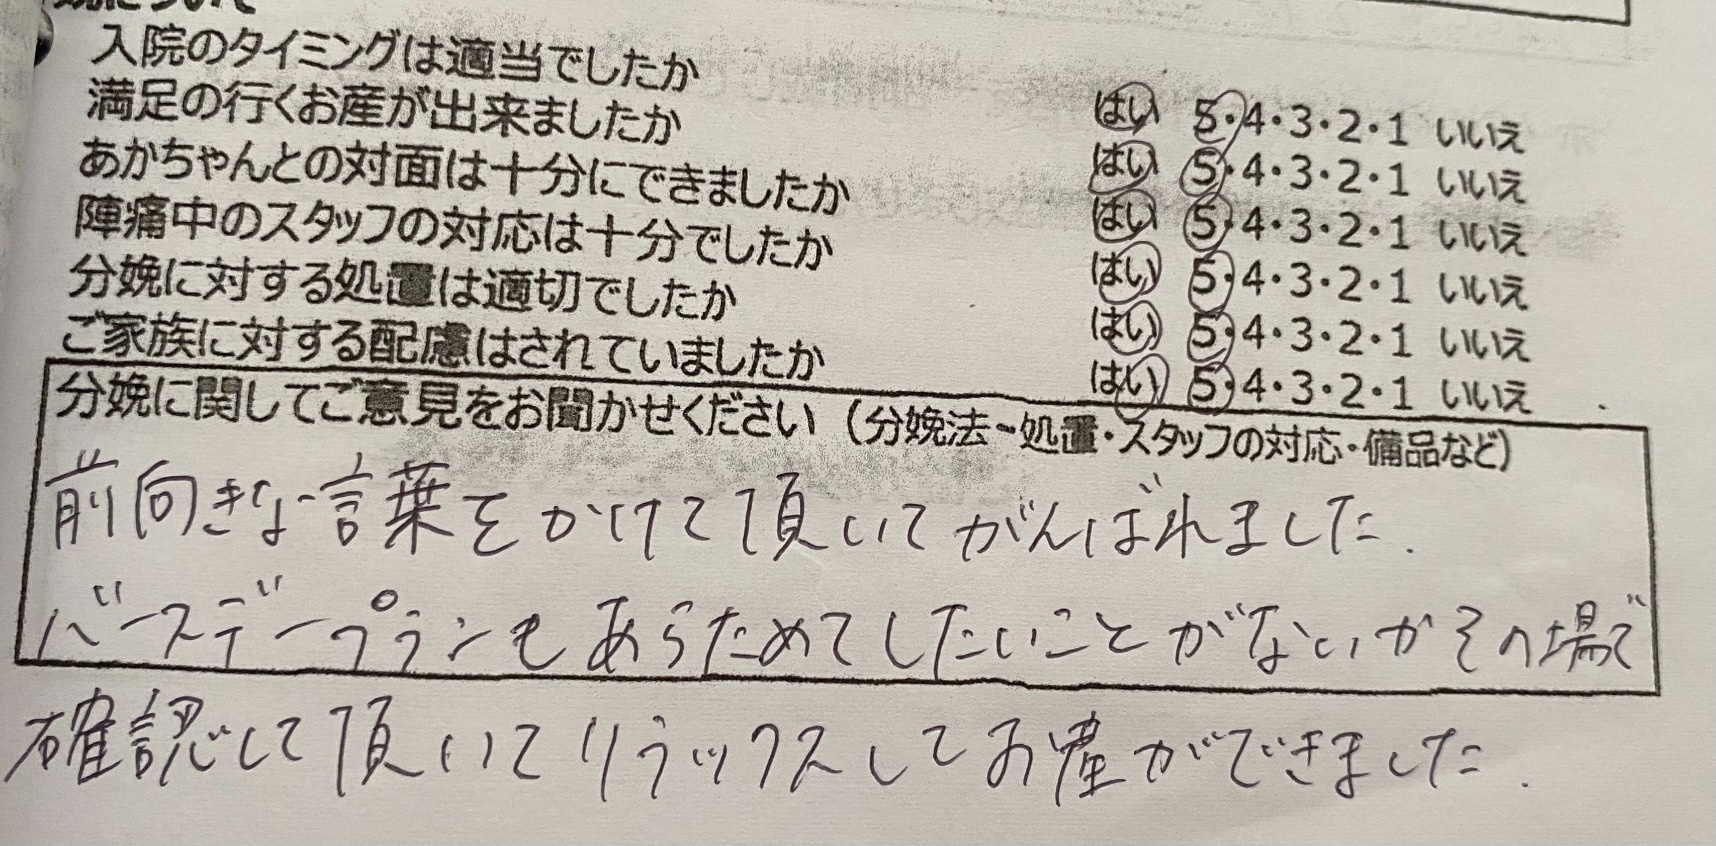 入院のタイミングは適当でしたか はい 5・4・3・2・1 いいえ
満足の行くお産が出来ましたか はい 5・4・3・2・1 いいえ
あかちゃんとの対面は十分にできましたか はい 5・4・3・2・1 いいえ
陣痛中のスタッフの対応は十分でしたか はい 5・4・3・2・1 いいえ
分娩に対する処置は適切でしたか はい 5・4・3・2・1 いいえ
ご家族に対する配慮はされていましたか はい 5・4・3・2・1 いいえ
分娩に関してご意見をお聞かせください(分娩法~処置・スタッフの対応・備品など)
前向きな言葉をかけて頂いてがんばれました.
バースデープランもあらためてしたいことがないかその場で
確認して頂いてリラックスしてお産ができました.